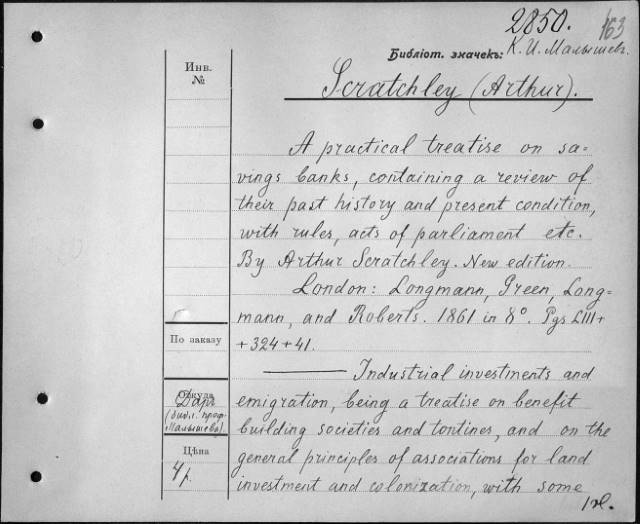 2850. 163
Библіот. значекъ: К. И. Малышевъ.
Scratchley (Arthur).
Инв.
№
A practical treatise on sa=
vings banks, containing a review of
their past history and present condition,
with rules, acts of parliament etc.
By Arthur Scratchley. New edition.
London: Longmann, Green, Long=
mann, and Roberts. 1861 in 8°. Pgs LIII+
+324+41.
По заказу
——— Industrial investments and
emigration, being a treatise on benefit
building societies and tontines, and on the
general principles of associations for land
investment and colonization, with some
Откуда
Даръ
(библ. проф.
Малышева)
Цѣна
4 р.